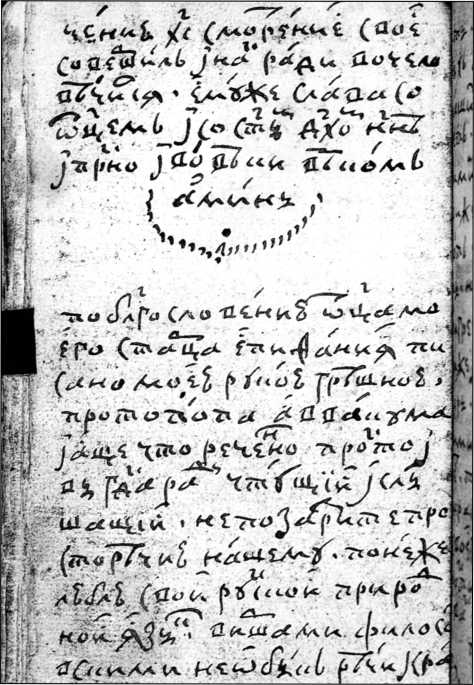 че́нию хс҃ смотре́ние своѐ
соверши́лъ і на́съ ра́ди вочело
вѣ́чился. ему́же сла́ва со
ѿц҃емъ і со ст҃ымъ дх҃омъ нн҃ѣ
і при́сно і во́ вѣки вѣко́мъ
а́минь
по блгⷭ҇слове́нию ѿца̀ мо
его̀ ста́рца епифа́ния пи
сано мое́ю руко́ю грѣ́шною
протопо́па авваку́ма
і а́ще что рече́нно про́сто і
вы̀ гдⷭ҇а ра́ди чту́щіи і слы́
шащіи. не позазри́те про
сторѣ́чию на́шему. поне́же
люблю̀ сво́й ру́ской приро́д
ной язы́къ. ви́ршами филосо́ѳ
скими не ѡбы́къ рѣ́чи кра